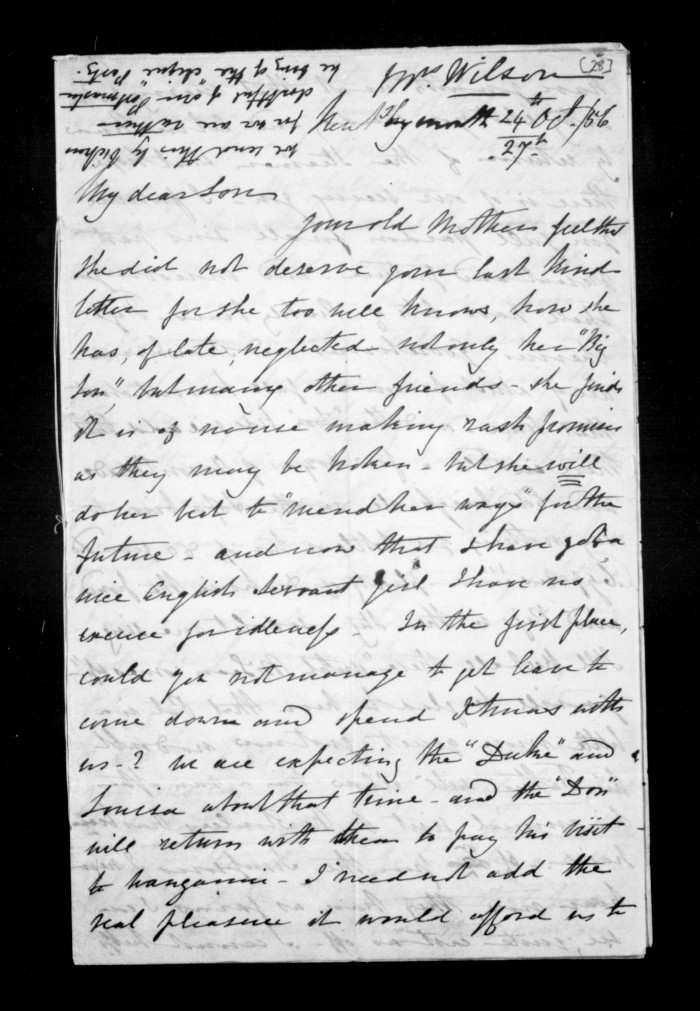 [28]
Mrs Wilson
New Plymouth 24th Oct. /56
we send this by
for we are rather
doubtful of our Postmaster
he being of the "clique" Party.
My dear Son
Your old Mother feels that
she did not deserve your last kind
letter for she too well knows, how she
has, of late, neglected not only her "Big
Son", but many other friends - she finds
it is of no use making rash promises
as they may be broken - but she will
do her best to "mend her ways" for the
future - and now that I have got a
nice English Servant girl I have no
excuse for idleness - In the first place,
could you not manage to get leave to
come down and spend Xtmas with
us -? We are expecting the "Duke" and
Louisa about that time - and the "Don"
will return with them to pay his visit
to Wanganui - I need not add the
real pleasure it would afford us to